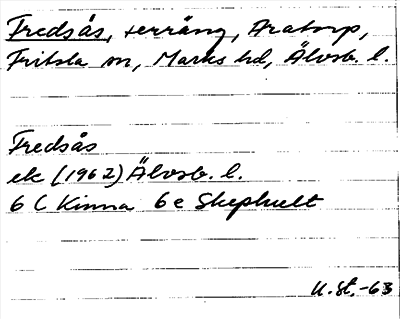 Fredsås, terräng, Aratorp,
Fritsla sn, Marks hd, Älvsb. l.
Fredsås
ek (1962) Älvsb. l.
6 C Kinna 6 e Skephult
U. St. -63